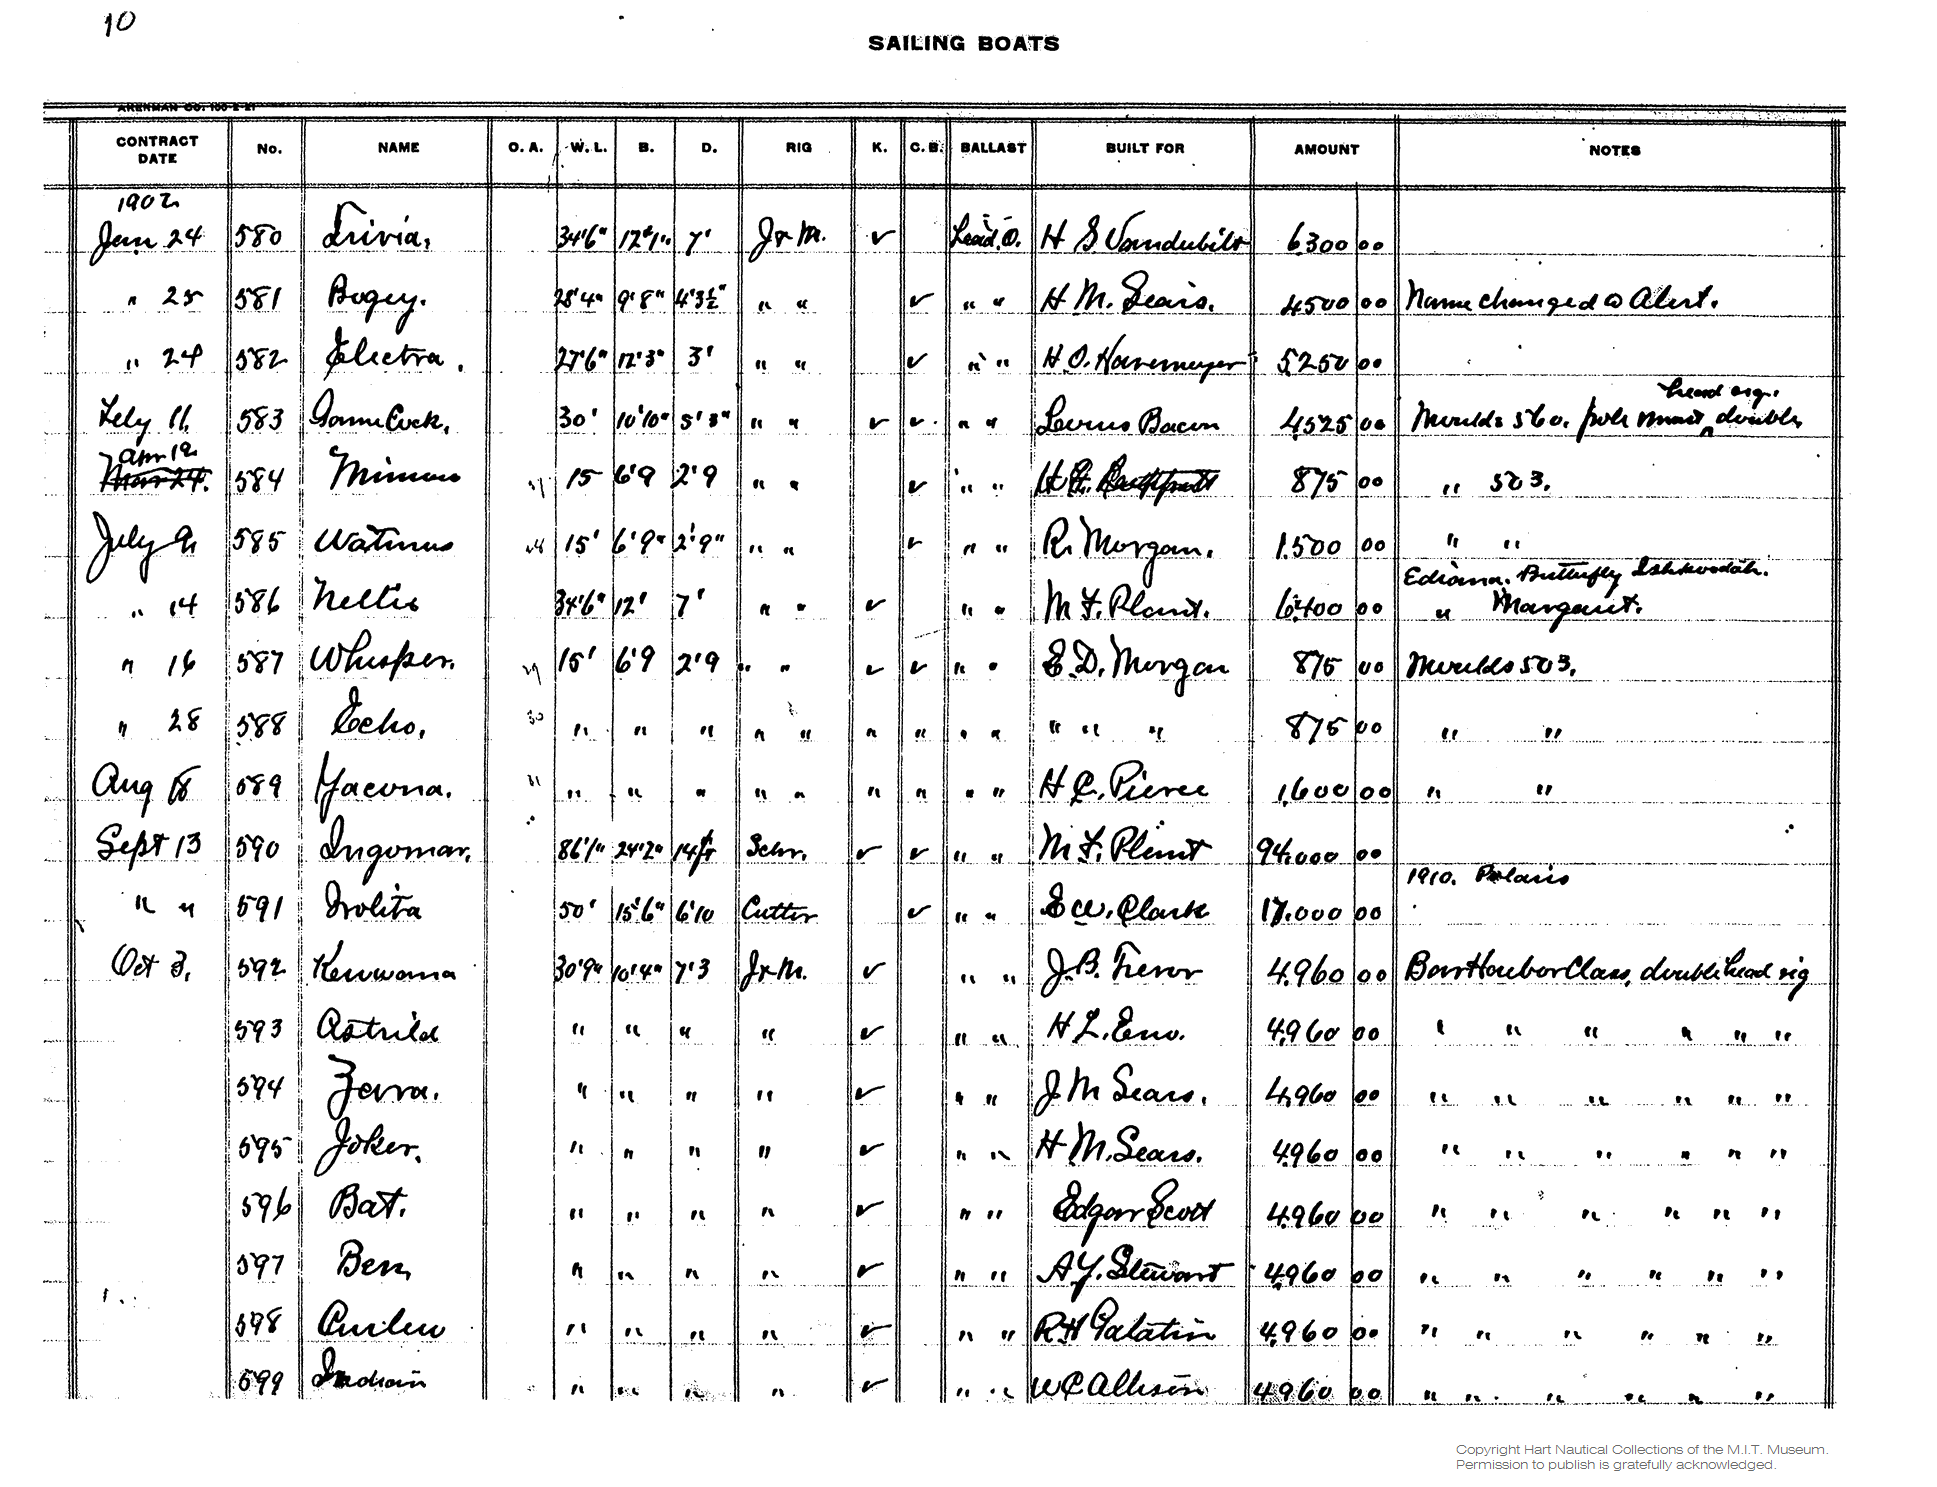 10
SAILING BOATS
CONTRACT DATE No. NAME O. A. W. L. B. D. RIG K. C. B. BALLAST BUILT FOR AMOUNT NOTES
1902
Jan 24 580 Trivia. 34'6" 12'1" 7' J & M. ✓ Lead O. H S Vanderbilt 6300 00
" 25 581 Bogey. 28'4" 9'8" 4'3½" " " ✓ " " H M. Sears. 4500 00 Name changed to Alert.
" 24 582 Electra. 27'6" 12'3" 3' " " ✓ " " H. O. Havemeyer 5250 00
head rig.
Feby 11. 583 Game Cock. 30' 10'10" 5'3" " " ✓ ✓ " " Bacon 4525 00 Moulds 560. pole mast double
Apr 19
Mar 24. 584 Mimosa 15 6'9 2'9 " " ✓ " " H 875 00 " 503.
July 9. 585 Watinus 15' 6'9" 2'9" " " ✓ " " R. Morgan. 1500 00 " "
Ediana. Butterfly Ishkoodah.
" 14 586 Nellie 34'6" 12' 7' " " ✓ " " M F. Plant. 6400 00 " Margaret.
" 16 587 Whisper. 29 15' 6'9 2'9 " " ✓ ✓ " " E. D. Morgan 875 00 Moulds 503.
" 28 588 Echo. 30 " " " " " " " " " " " " 875 00 " "
Aug 18 589 Yacona. 31 " " " " " " " " " H C. Pierce 1600 00 " "
Sept 13 590 Ingomar. 86'1" 24'2" 14 ft Schr. ✓ ✓ " " M F. Plant 94.000 00
1910. Polaris
" " 591 Irolita 50' 15'6" 6'10 Cutter ✓ " " E W. Clark 17.000 00
Oct 3. 592 Keewana 30'9" 10'4" 7'3 J & M. ✓ " " J. B. Trevor 4960 00 Bar Harbor Class, double head rig
593 Astrild " " " " ✓ " " H L. Eno. 4960 00 " " " " " "
594 Zarra. " " " " ✓ " " J M Sears. 4960 00 " " " " " "
595 Joker. " " " " ✓ " " H M. Sears. 4960 00 " " " " " "
596 Bat. " " " " ✓ " " Edgar Scott 4960 00 " " " " " "
597 Ben, " " " " ✓ " " A Y. Stewart 4960 00 " " " " " "
598 Curlew " " " " ✓ " " R H Galatin 4960 00 " " " " " "
599 Indian " " " " ✓ " " W C Allison 4960 00 " " " " " "
Copyright Hart Nautical Collections of the M.I.T. Museum.
Permission to publish is gratefully acknowledged.